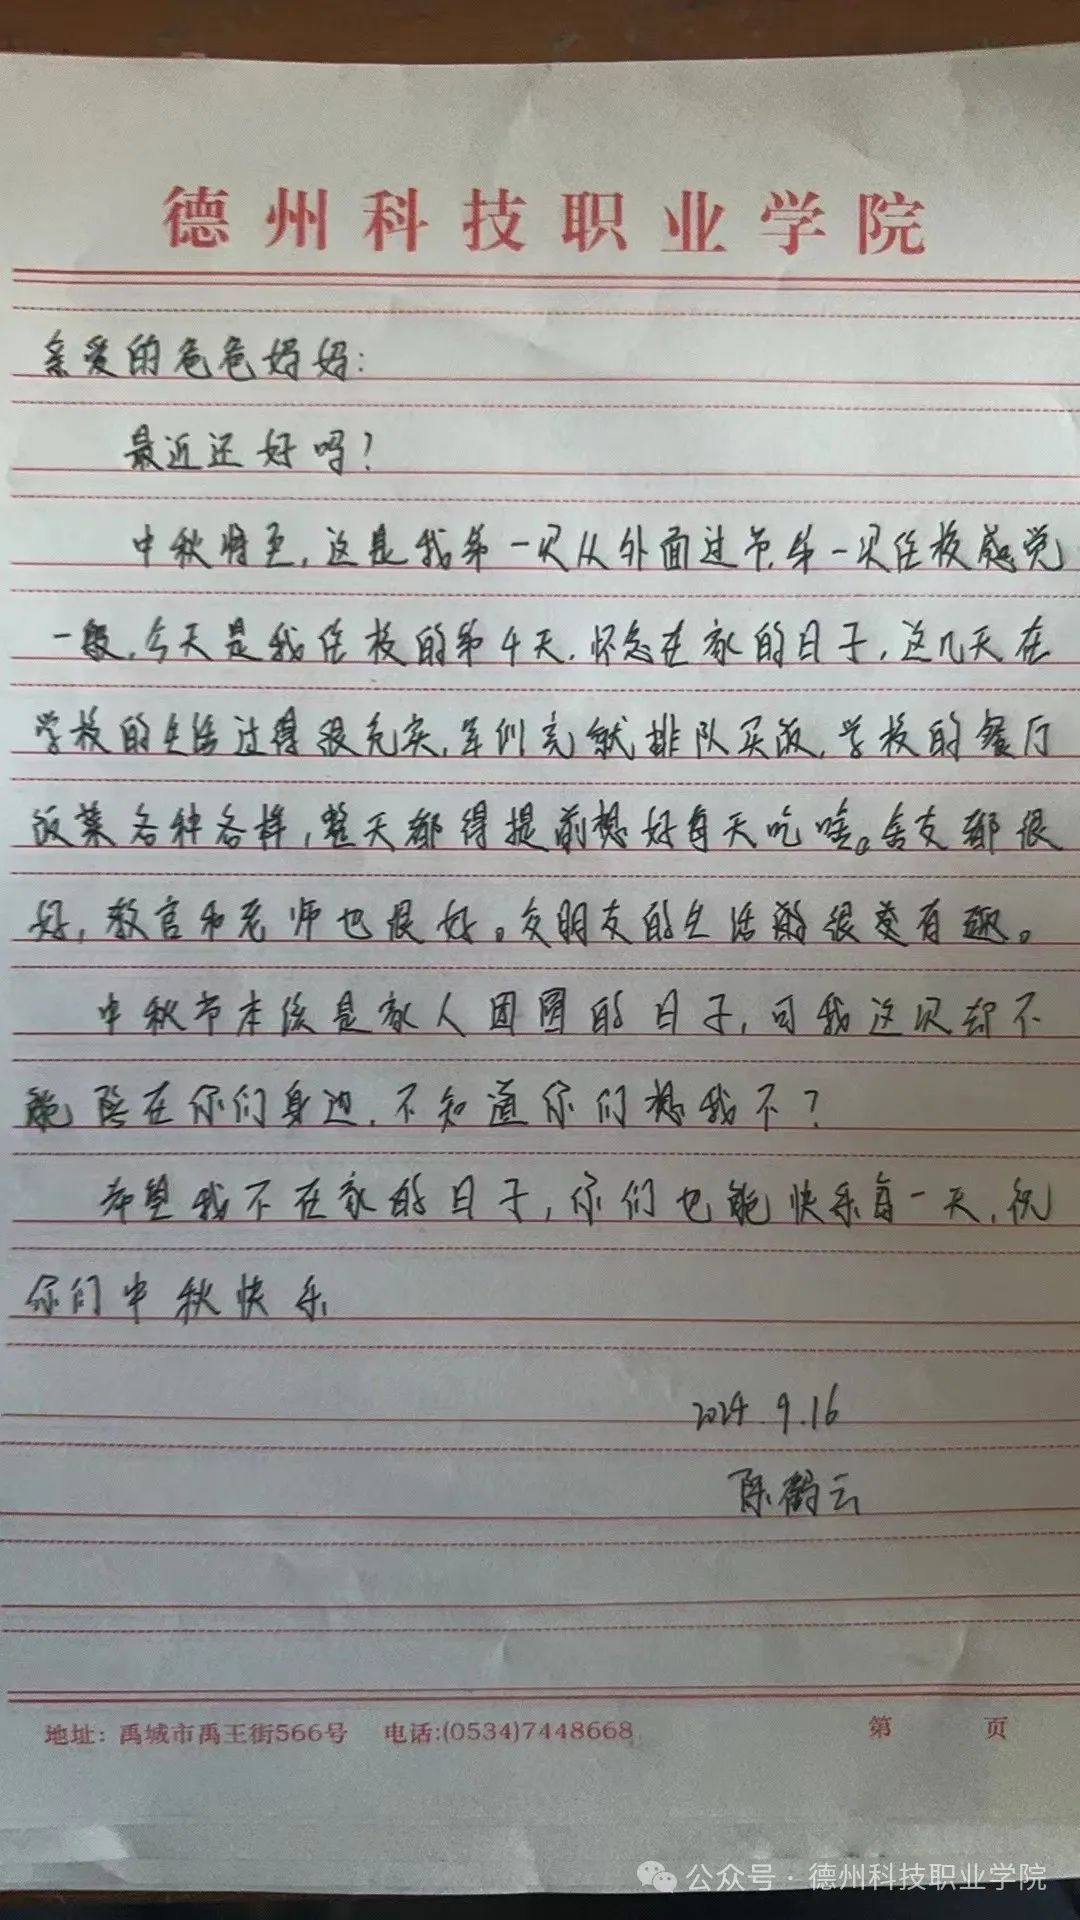 德州科技职业学院
亲爱的爸爸妈妈:
最近还好吗?
中秋将至,这是我第一次从外面过节,第一次住校感觉
一般,今天是我住校的第4天,怀念在家的日子,这几天在
学校的生活过得很充实,军训完就排队买饭,学校的餐厅
饭菜各种各样,整天都得提前想好每天吃啥。舍友都很
好,教官和老师也很好。交朋友的生活的很是有趣。
中秋节本该是家人团圆的日子,可我这次却不
能陪在你们身边,不知道你们想我不?
希望我不在家的日子,你们也能快乐每一天,祝
你们中秋快乐
2024.9.16
陈鹤云
地址:禹城市禹王街566号 电话:(0534)7448668 第 页
公众号·德州科技职业学院